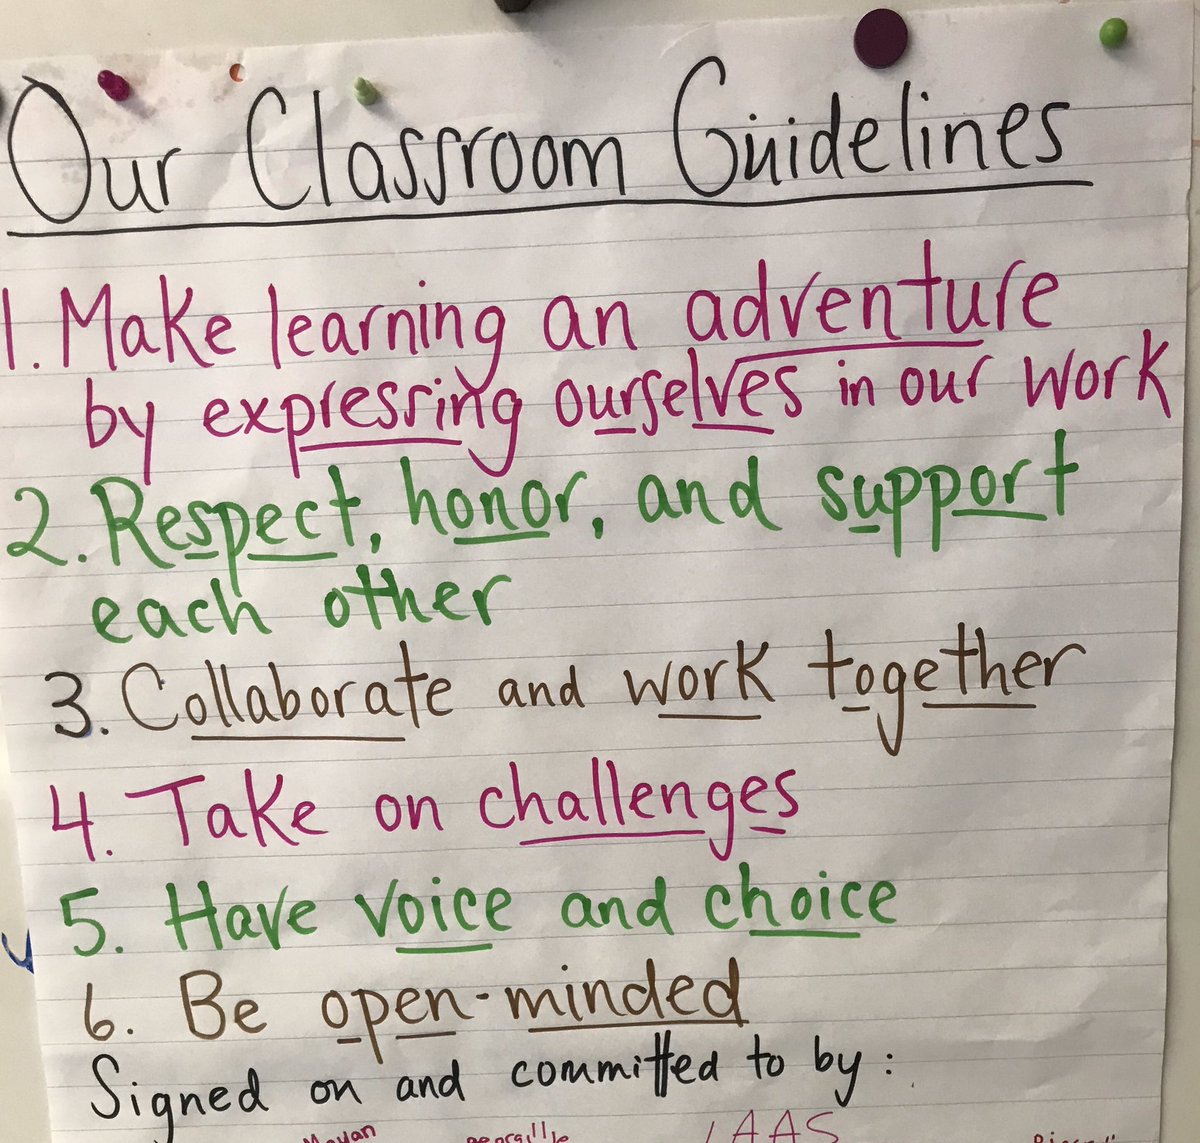 Our Classroom Guidelines
1. Make learning an adventure
by expressing ourselves in our work
2. Respect, honor, and support
each other
3. Collaborate and work together
4. Take on challenges
5. Have voice and choice
6. Be open-minded
Signed on and committed to by: